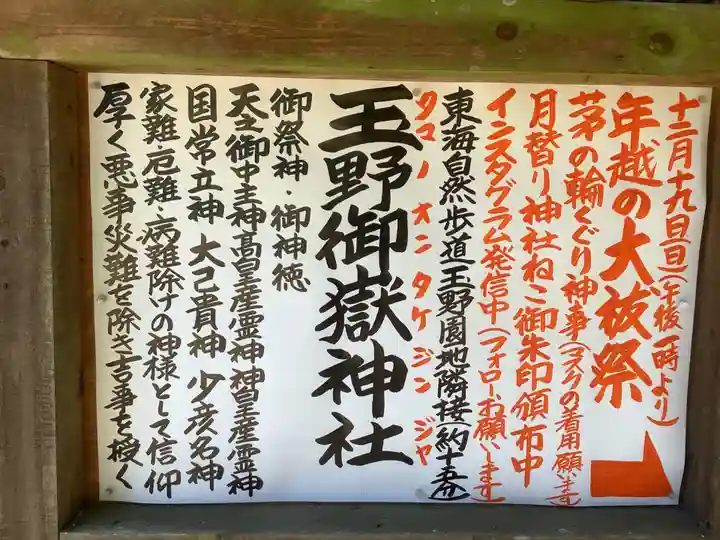 十二月十九日(日)(午後一時より)
年越の大祓祭
茅の輪くぐり神事(マスクの着用願います)
月替り神社ねこ御朱印頒布中
インスタグラム発信中(フォローお願いします)
東海自然歩道玉野園地隣接(約十五分)
タマノオンタケジンジャ
玉野御嶽神社
御祭神・御神徳
天之御中主神髙皇産霊神神皇産霊神
国常立神 大己貴神 少彦名神
家難・厄難・病難除けの神様として信仰
厚く悪事災難を除き吉事を授く